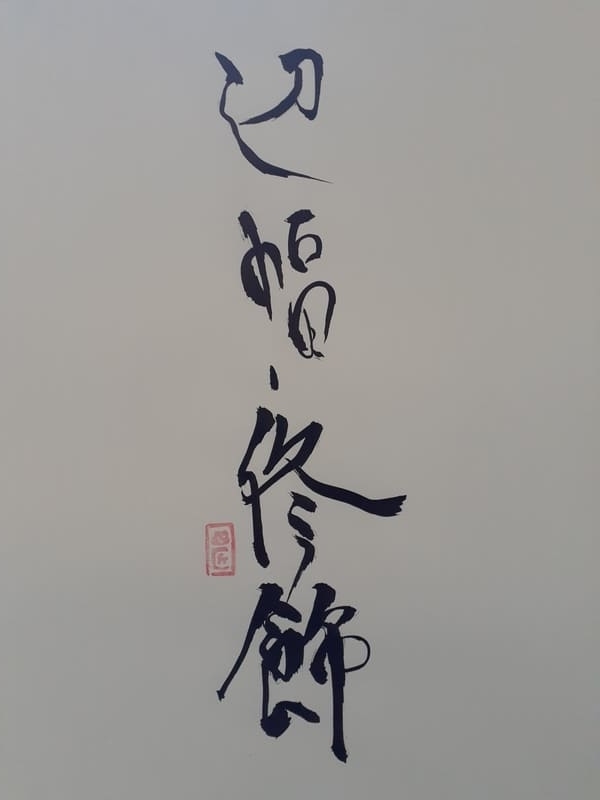 辺幅修飾